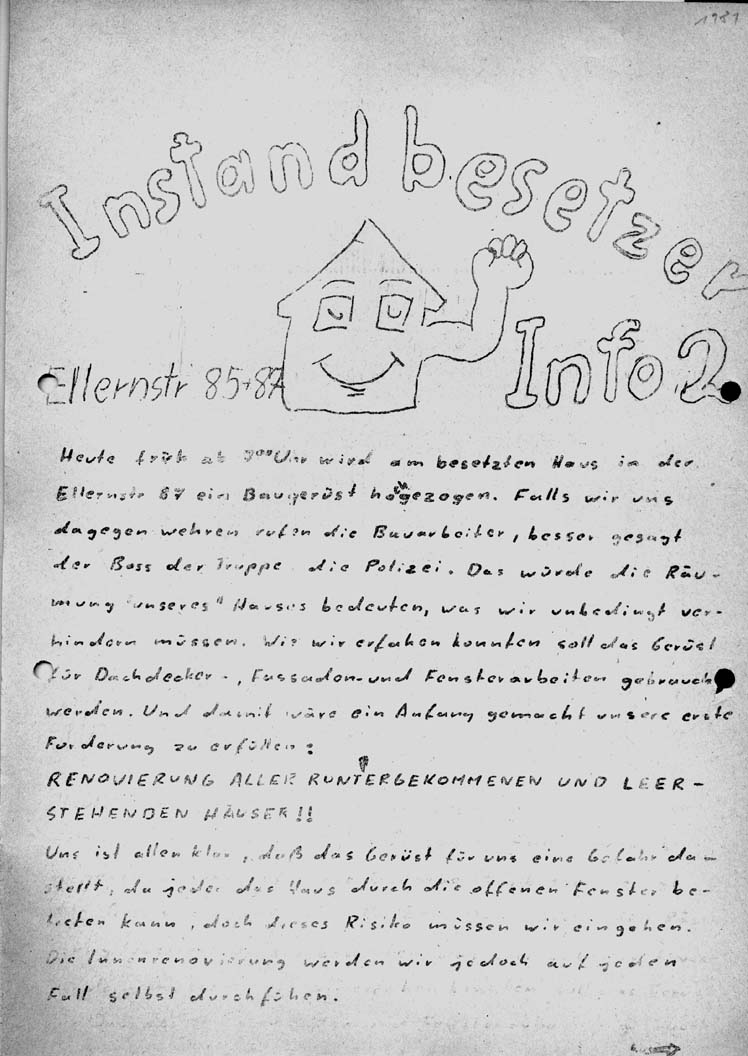 1981
Instandbesetzer
Info 2
Ellernstr 85+87
Heute früh ab 7⁰⁰ Uhr wird am besetzten Haus in der
Ellernstr 87 ein Baugerüst hochgezogen. Falls wir uns
dagegen wehren rufen die Bauarbeiter, besser gesagt
der Boss der Truppe die Polizei. Das würde die Räu-
mung "unseres" Hauses bedeuten, was wir unbedingt ver-
hindern müssen. Wie wir erfahen konnten soll das Gerüst
für Dachdecker-, Fassaden- und Fensterarbeiten gebraucht
werden. Und damit wäre ein Anfang gemacht unsere erste
Forderung zu erfüllen:
RENOVIERUNG ALLER RUNTERGEKOMMENEN UND LEER-
STEHENDEN HÄUSER!!
Uns ist allen klar, daß das Gerüst für uns eine Gefahr da-
stellt, da jeder das Haus durch die offenen Fenster be-
treten kann, doch dieses Risiko müssen wir eingehen.
Die Innenrenovierung werden wir jedoch auf jeden
Fall selbst durchfühen.